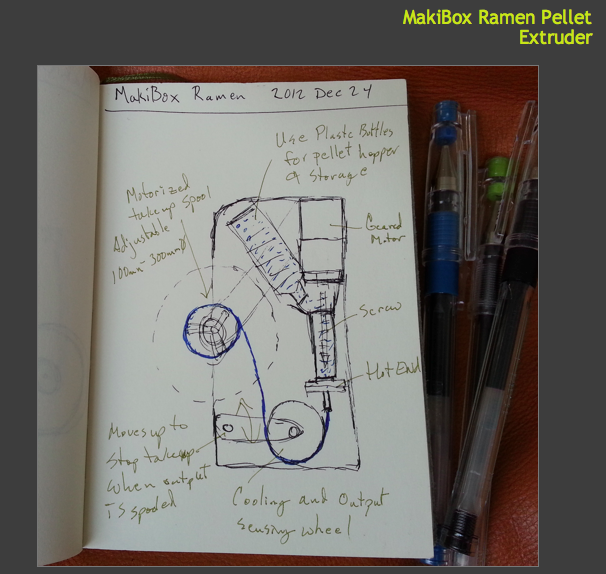 MakiBox Ramen Pellet
Extruder
MakiBox Ramen 2012 Dec 24
Use Plastic Bottles
for pellet hopper
& Storage
Motorized
takeup spool
Adjustable
100mm-300mmØ
Geared
Motor
Screw
Hot End
Moves up to
Stop takeup
when output
is spooled
Cooling and Output
sensing wheel